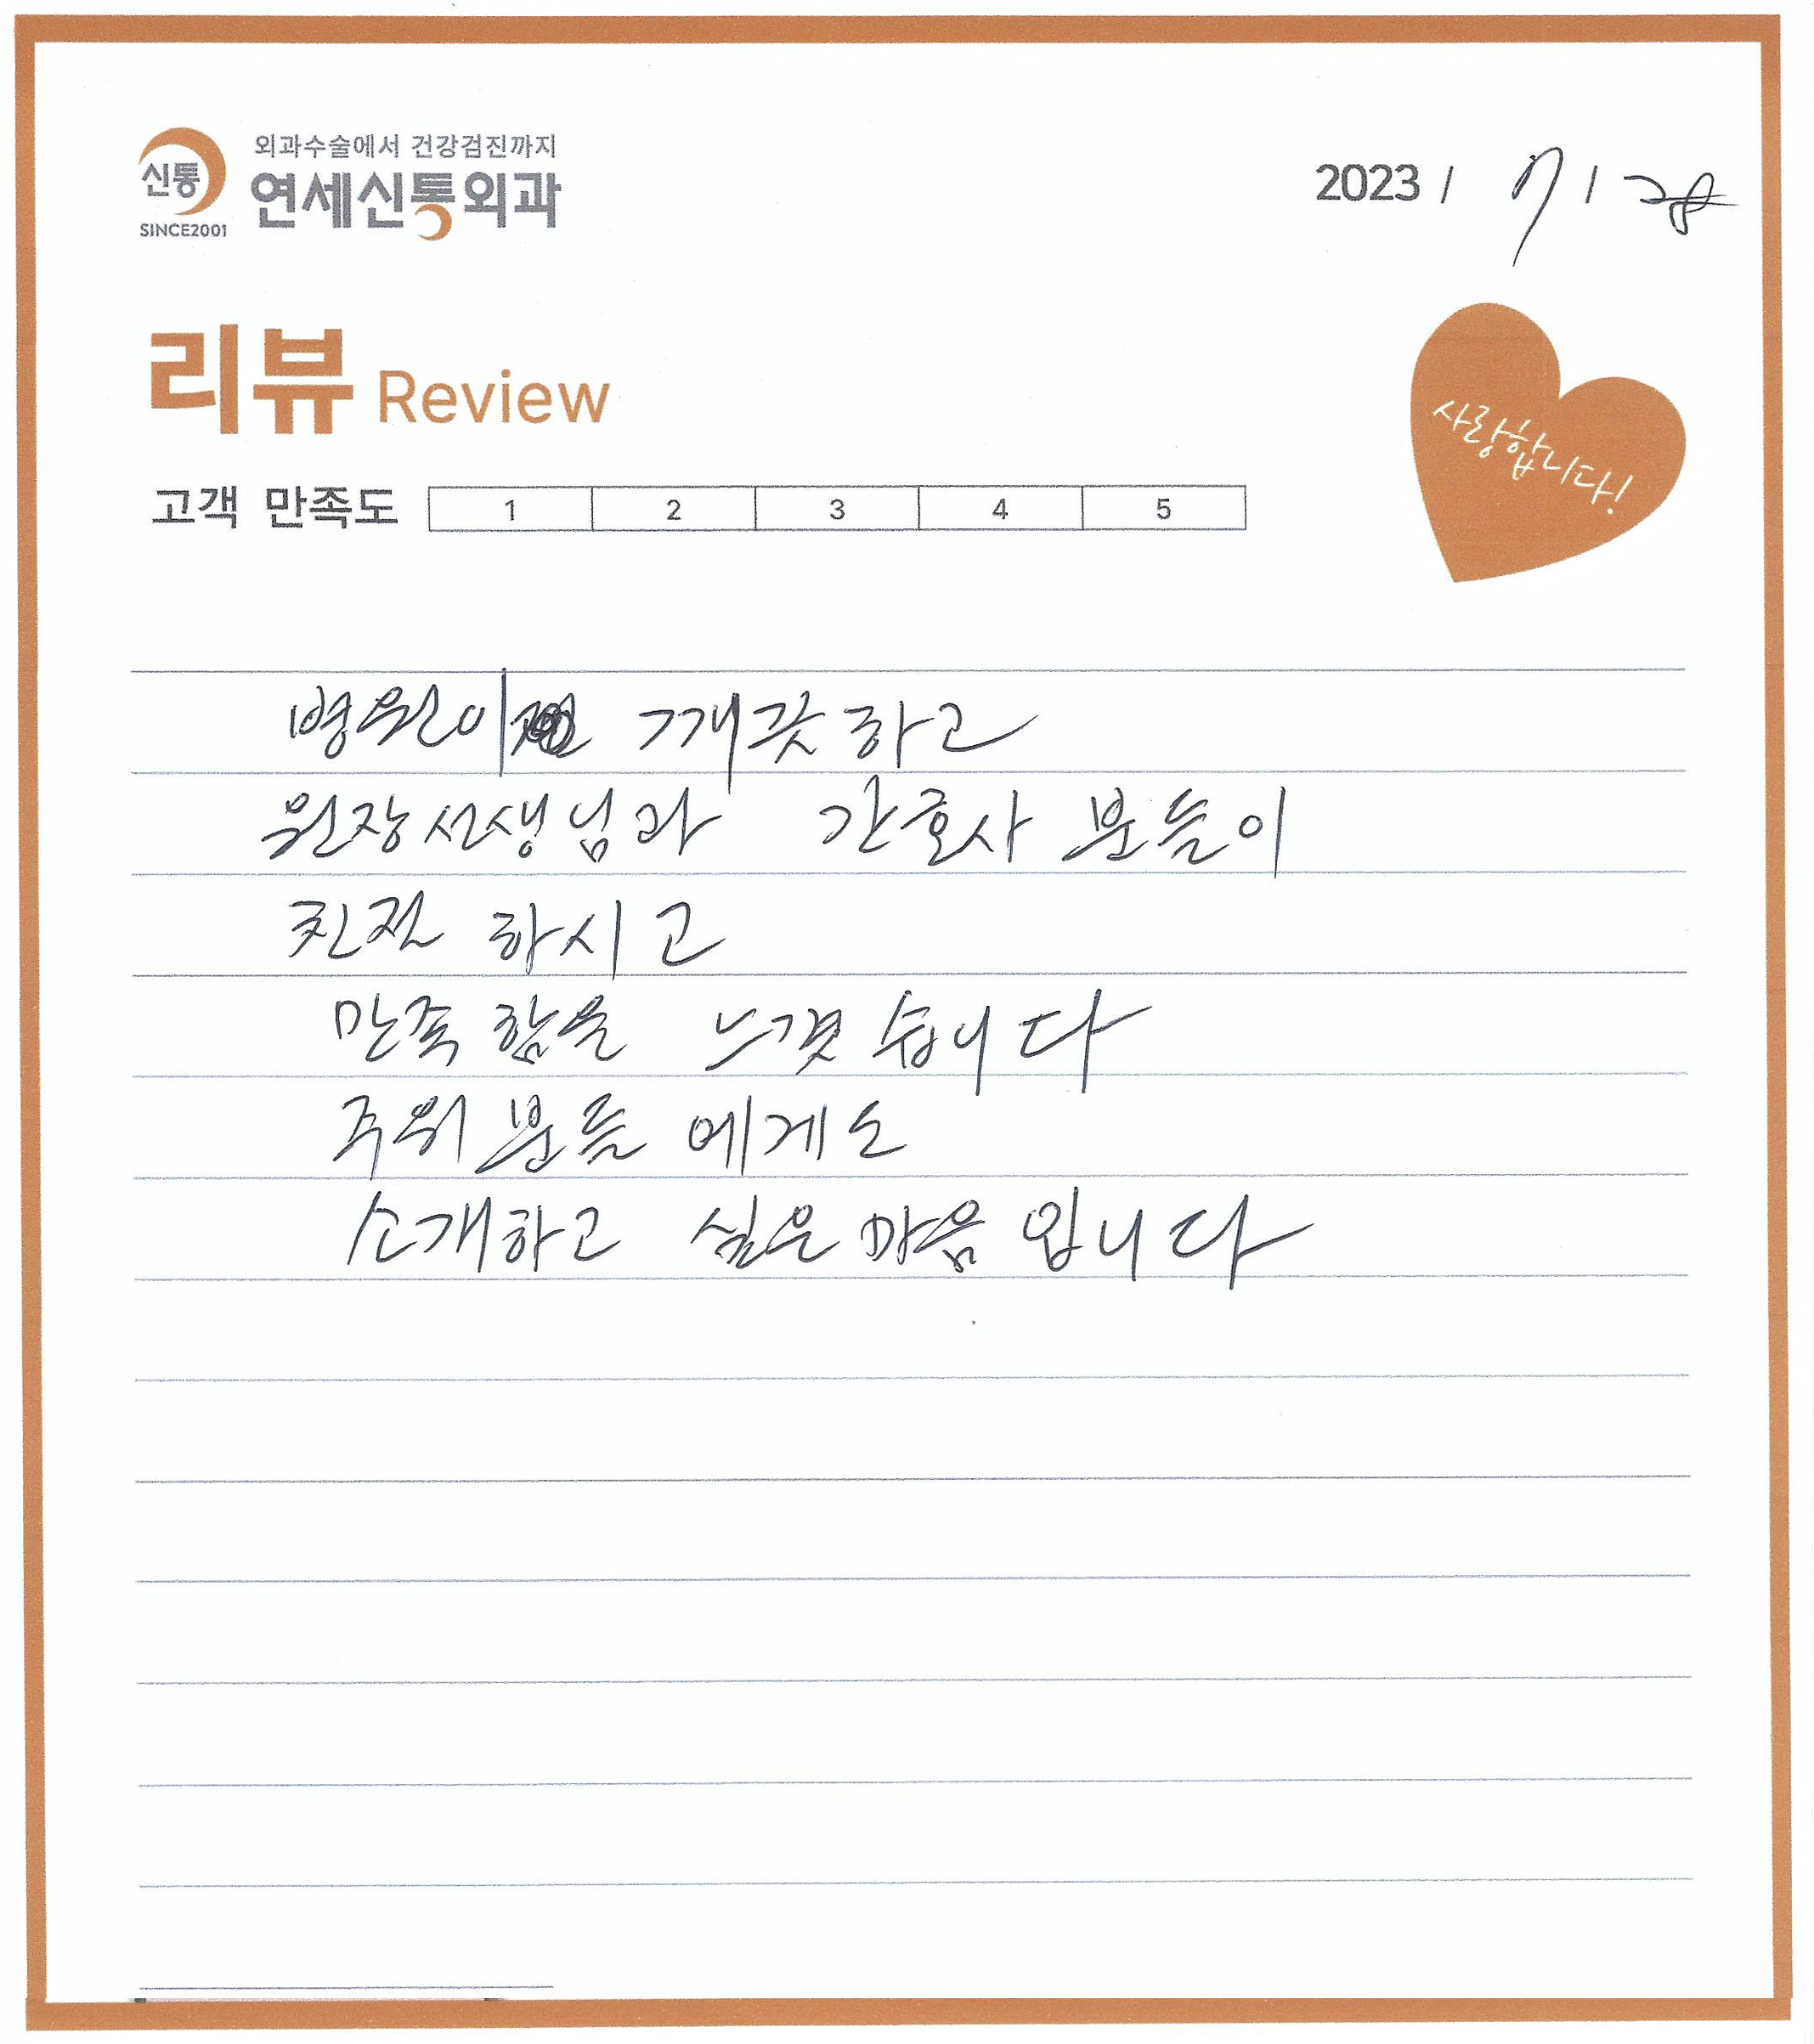 외과수술에서 건강검진까지
신통 연세신통외과
SINCE2001
2023 / 7 / 28
리뷰 Review
사랑합니다!
고객 만족도 1 2 3 4 5
병원이 깨긋하고
원장선생님과 간호사 분들이
친절 하시고
만족함을 느겻습니다
주위 분들 에게도
소개하고 싶은 마음 입니다